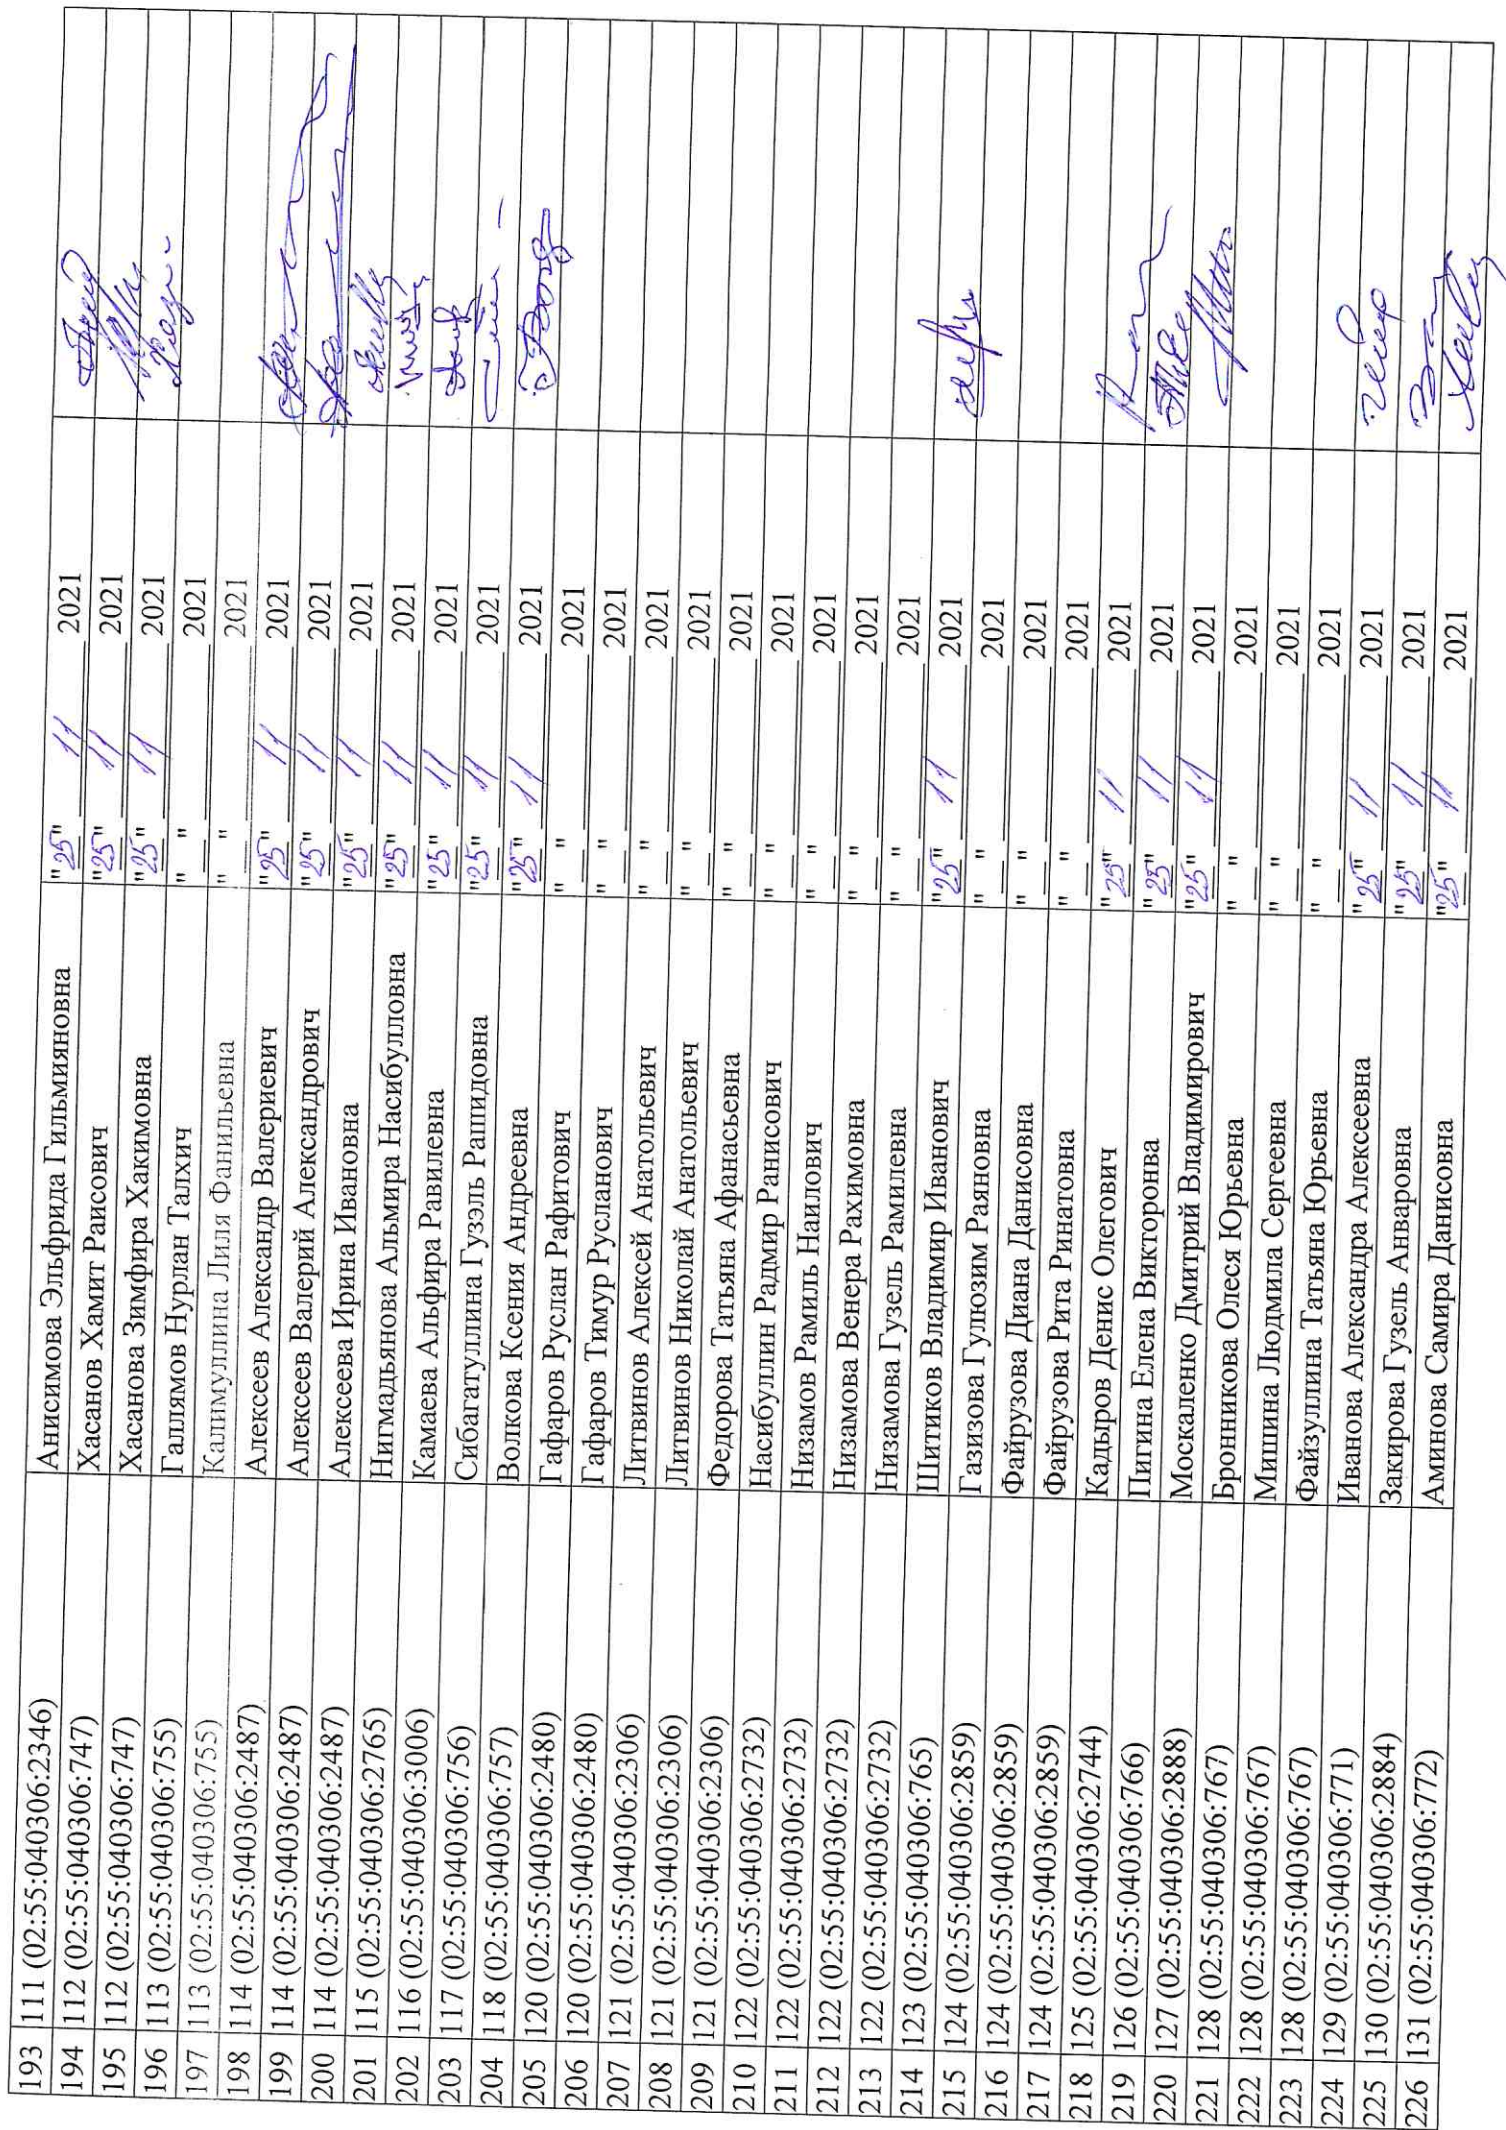 193 111 (02:55:040306:2346) Анисимова Эльфрида Гильмияновна "25" 11 2021
194 112 (02:55:040306:747) Хасанов Хамит Раисович "25" 11 2021
195 112 (02:55:040306:747) Хасанова Зимфира Хакимовна "25" 11 2021
196 113 (02:55:040306:755) Галлямов Нурлан Талхич "__" ______ 2021
197 113 (02:55:040306:755) Калимуллина Лиля Фанильевна "__" ______ 2021
198 114 (02:55:040306:2487) Алексеев Александр Валериевич "25" 11 2021
199 114 (02:55:040306:2487) Алексеев Валерий Александрович "25" 11 2021
200 114 (02:55:040306:2487) Алексеева Ирина Ивановна "25" 11 2021
201 115 (02:55:040306:2765) Нигмадьянова Альмира Насибулловна "25" 11 2021
202 116 (02:55:040306:3006) Камаева Альфира Равилевна "25" 11 2021
203 117 (02:55:040306:756) Сибагатуллина Гузэль Рашидовна "25" 11 2021
204 118 (02:55:040306:757) Волкова Ксения Андреевна "25" 11 2021
205 120 (02:55:040306:2480) Гафаров Руслан Рафитович "__" ______ 2021
206 120 (02:55:040306:2480) Гафаров Тимур Русланович "__" ______ 2021
207 121 (02:55:040306:2306) Литвинов Алексей Анатольевич "__" ______ 2021
208 121 (02:55:040306:2306) Литвинов Николай Анатольевич "__" ______ 2021
209 121 (02:55:040306:2306) Федорова Татьяна Афанасьевна "__" ______ 2021
210 122 (02:55:040306:2732) Насибуллин Радмир Ранисович "__" ______ 2021
211 122 (02:55:040306:2732) Низамов Рамиль Наилович "__" ______ 2021
212 122 (02:55:040306:2732) Низамова Венера Рахимовна "__" ______ 2021
213 122 (02:55:040306:2732) Низамова Гузель Рамилевна "__" ______ 2021
214 123 (02:55:040306:765) Шитиков Владимир Иванович "25" 11 2021
215 124 (02:55:040306:2859) Газизова Гулюзим Раяновна "__" ______ 2021
216 124 (02:55:040306:2859) Файрузова Диана Данисовна "__" ______ 2021
217 124 (02:55:040306:2859) Файрузова Рита Ринатовна "__" ______ 2021
218 125 (02:55:040306:2744) Кадыров Денис Олегович "25" 11 2021
219 126 (02:55:040306:766) Пигина Елена Викторонва "25" 11 2021
220 127 (02:55:040306:2888) Москаленко Дмитрий Владимирович "25" 11 2021
221 128 (02:55:040306:767) Бронникова Олеся Юрьевна "__" ______ 2021
222 128 (02:55:040306:767) Мишина Людмила Сергеевна "__" ______ 2021
223 128 (02:55:040306:767) Файзуллина Татьяна Юрьевна "__" ______ 2021
224 129 (02:55:040306:771) Иванова Александра Алексеевна "25" 11 2021
225 130 (02:55:040306:2884) Закирова Гузель Анваровна "25" 11 2021
226 131 (02:55:040306:772) Аминова Самира Данисовна "25" 11 2021